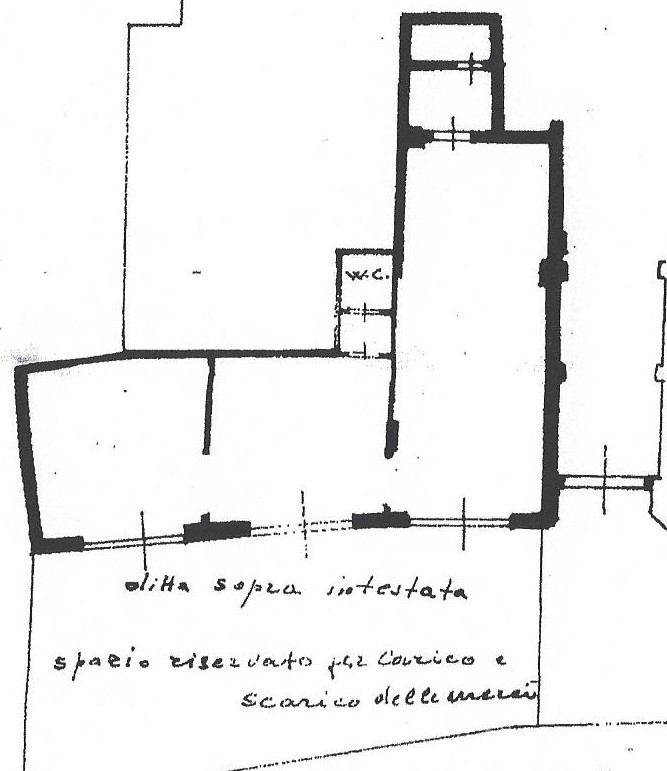 W.C.
ditta sopra intestata
spazio riservato per carico e
scarico delle merci